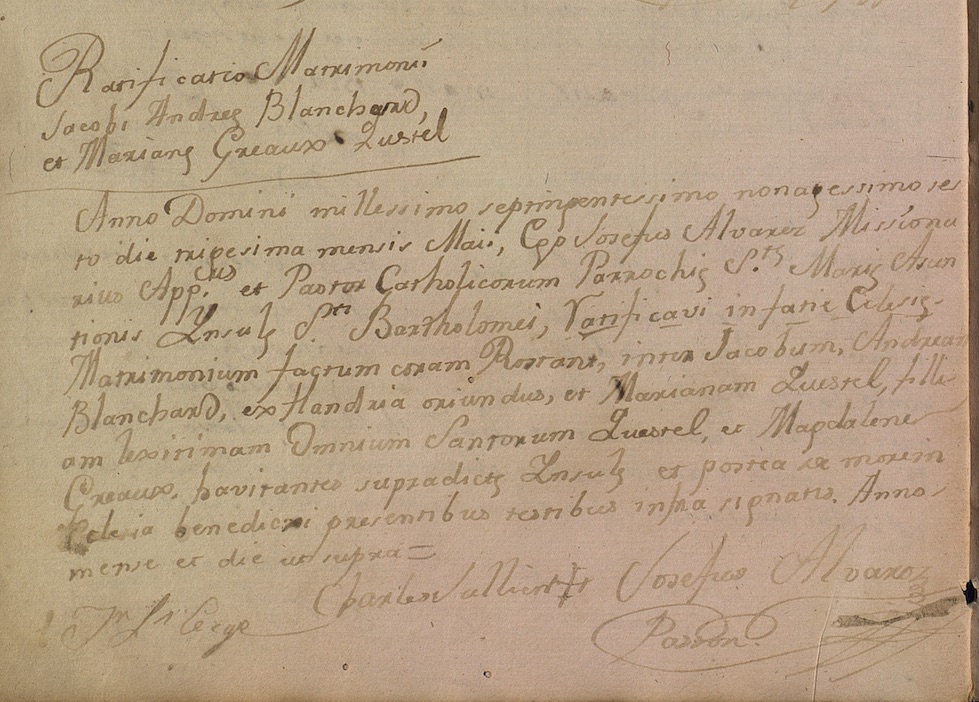 Ratificatio Matrimonii
Jacobi Andreę Blanchard,
et Marianę Greaux Questel
Anno Domini millessimo septingentessimo nonagessimo sex
to die trigesima mensis Maii, Ego Josefus Alvarez Missiona
rius App.cus et Pastor Catholicorum Parrochię S.tę Marię Asun
tionis Ynsulę S.ti Bartholomei, Ratificavi in facie Eclesię
Matrimonium factum coram inter Jacobum, Andream
Blanchard, ex flandria oriundus, et Marianam Questel, filli-
am lexitimam Omnium Santorum Questel, et Magdalene
Greaux. havitantes supradictę Ynsulę et postea ex morem
Eclesia benedicxi presentibus testibus infra signatis. Anno
mense et die ut supra =
Charles Josefus Alvarez
Pastor.